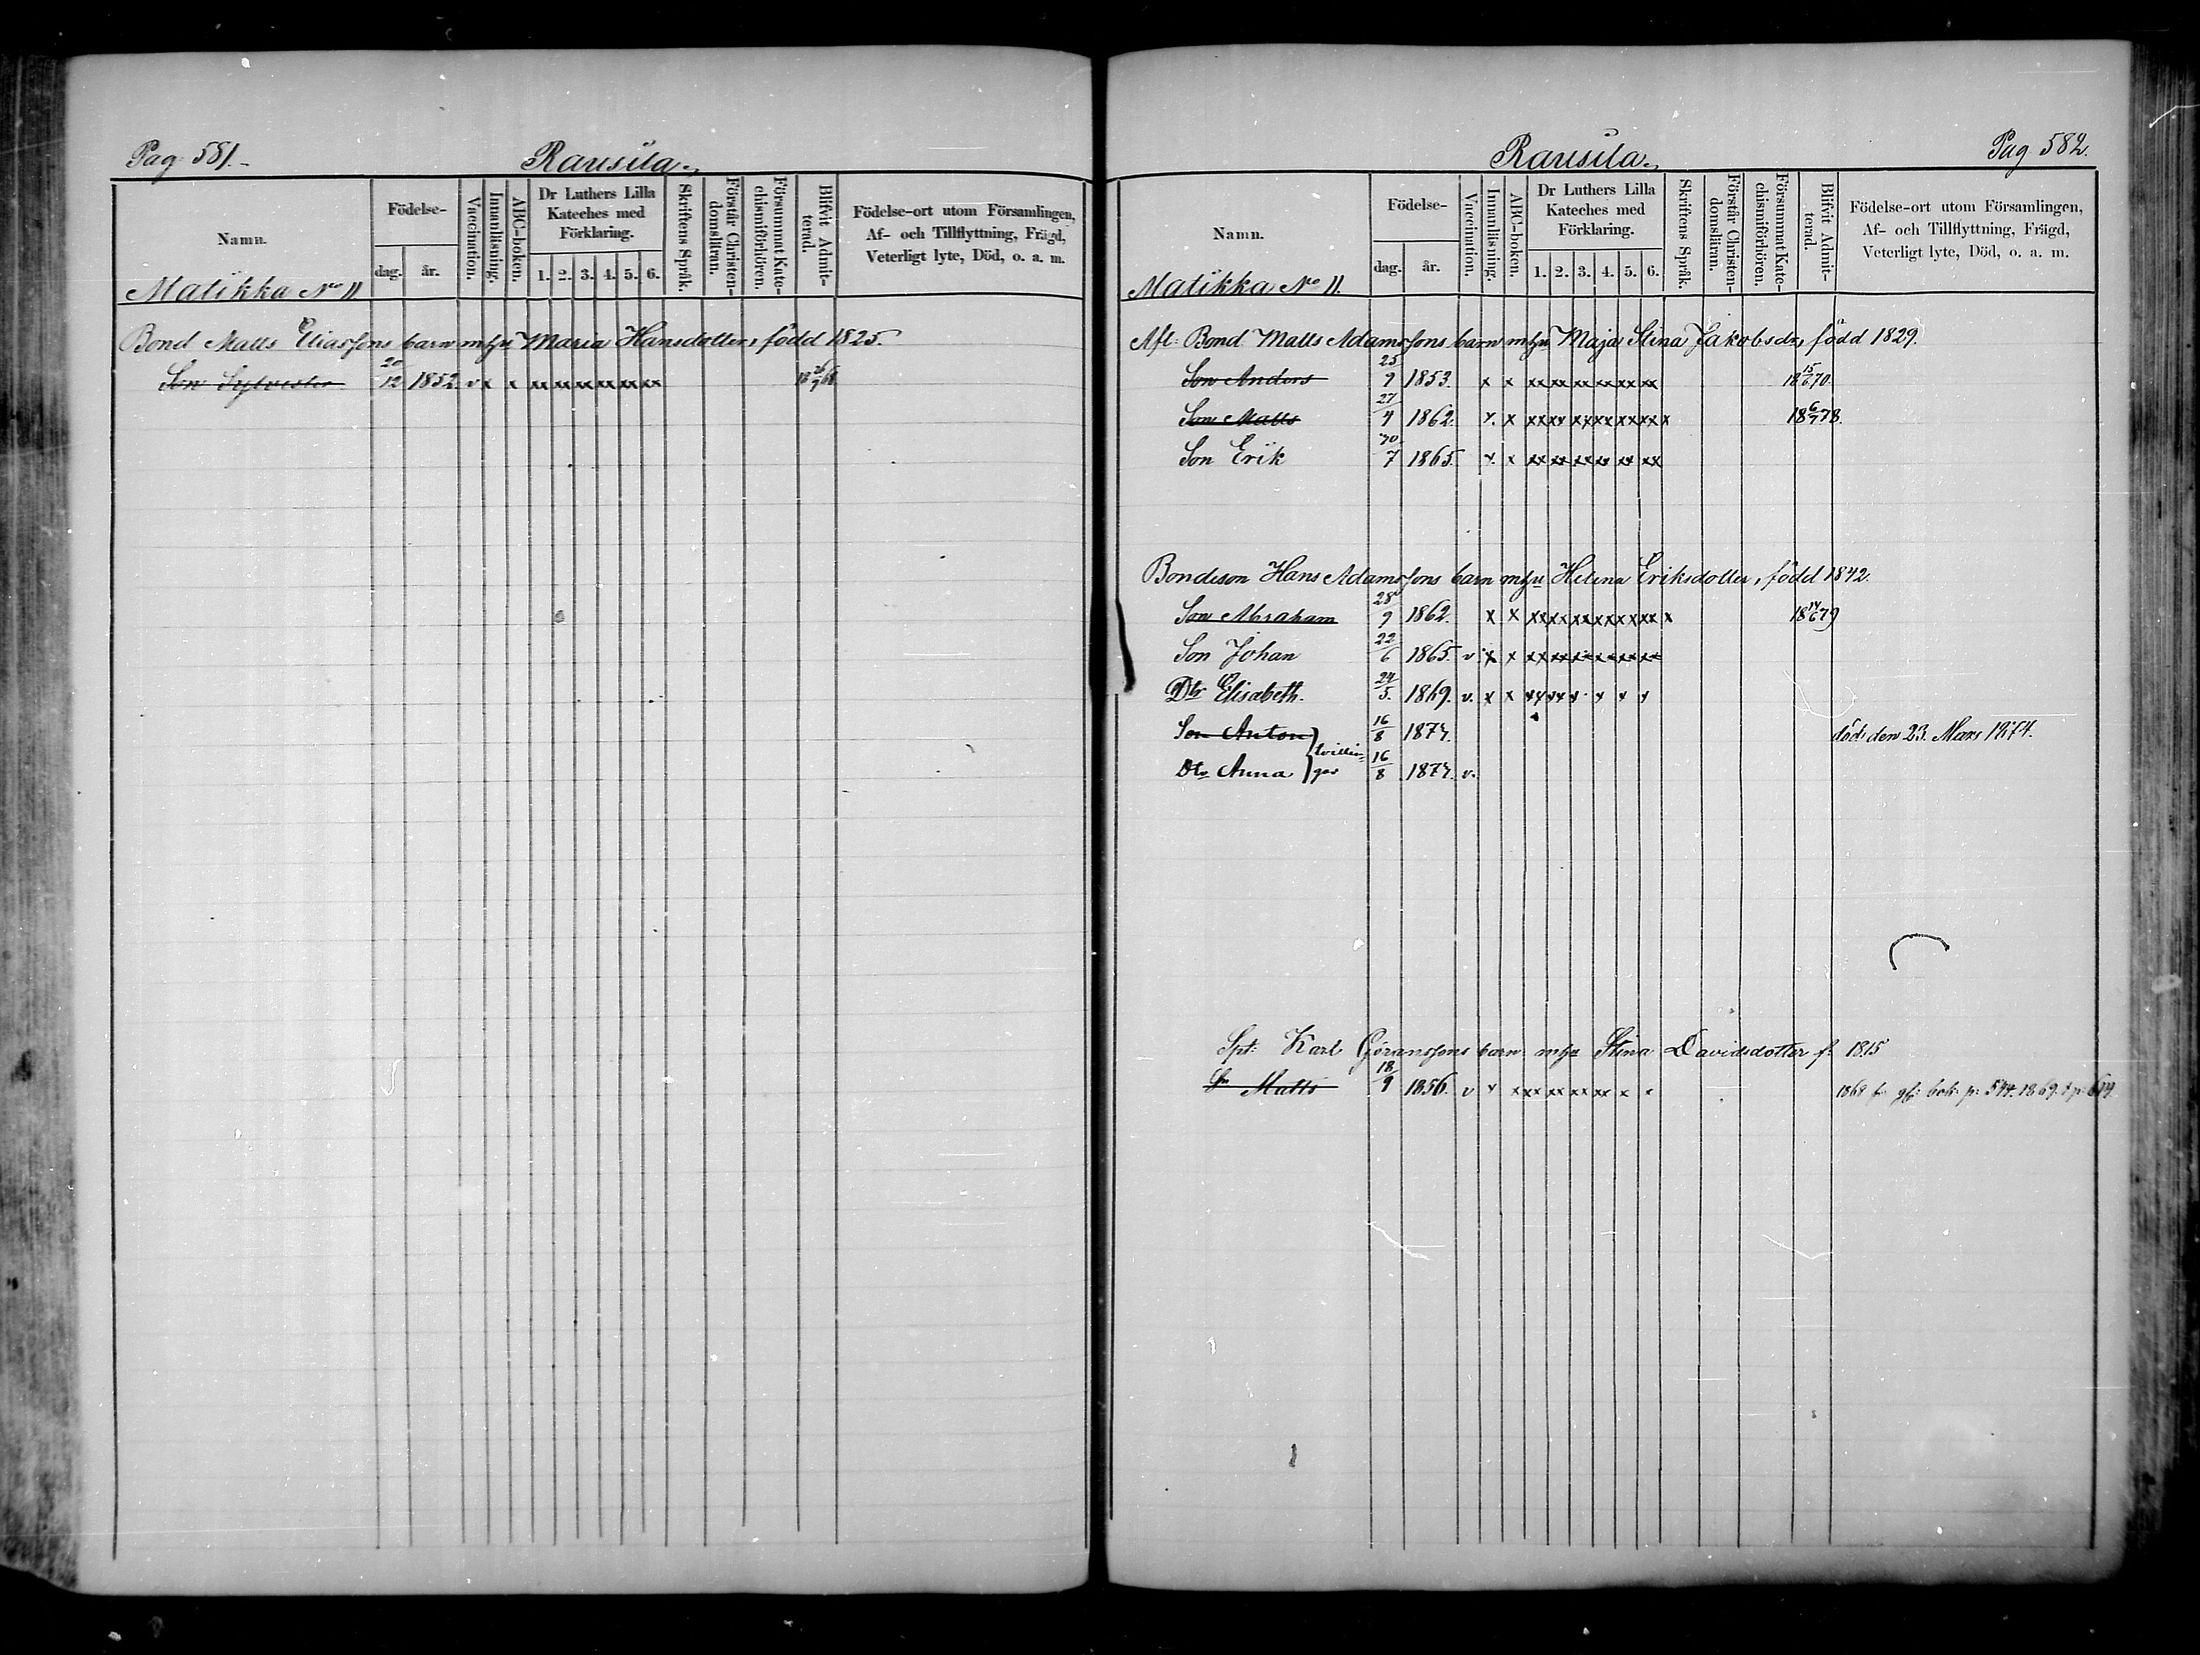 Pag 581.
Rausila.
Namn.
Födelse-
dag.
år.
Vaccination.
Innanläsning.
ABC-boken.
Dr Luthers Lilla
Kateches med
Förklaring.
1. 2. 3. 4. 5. 6.
Skriftens Språk.
Förstår Christen-
domsläran.
Försummat Kate-
chismiförhören.
Blifvit Admit-
terad.
Födelse-ort utom Församlingen,
Af- och Tillflyttning, Frägd,
Veterligt lyte, Död, o. a. m.
Matikka No 11
Bond Matts Eliassons barn m h u Maria Hansdotter, född 1825.
Son Sylvester 20/12 1852. v x x xx xx xx xx xx xx
Pag 582.
Rausila.
Namn.
Födelse-
dag.
år.
Vaccination.
Innanläsning.
ABC-boken.
Dr Luthers Lilla
Kateches med
Förklaring.
1. 2. 3. 4. 5. 6.
Skriftens Språk.
Förstår Christen-
domsläran.
Försummat Kate-
chismiförhören.
Blifvit Admit-
terad.
Födelse-ort utom Församlingen,
Af- och Tillflyttning, Frägd,
Veterligt lyte, Död, o. a. m.
Matikka No 11.
Afl: Bond Matts Adamssons barn mhu Maja Stina Jakobsdr, född 1829.
Son Anders 25/9 1853. x x xx xx xx xx xx xx 18 15/6 70.
Son Matts 27/4 1862. x x xx xx xx xx xx xx x 18 6/7 78.
Son Erik 30/7 1865. x x xx xx xx xx xx xx
Bondeson Hans Adamssons barn mhu Helena Eriksdotter, född 1842.
Son Abraham 28/9 1862. x x xx xx xx xx xx xx x 18 14/6 79
Son Johan 22/6 1865. v x x xx xx xx xx xx xx
Dtr Elisabeth. 24/5. 1869. v. x x xx xx x x x x
Son Anton 16/8 1873. död den 23. Mars 1874.
tvillin-
Dtr Anna gar 16/8 1873. v.
Spt: Karl Göranssons barn mhu Stina Davidsdotter f. 1815
Sn Matts 18/9 1856. v x x xx xx xx xx x x 1868 fr. gl: bok: p: 544. 1869. t p: 619.